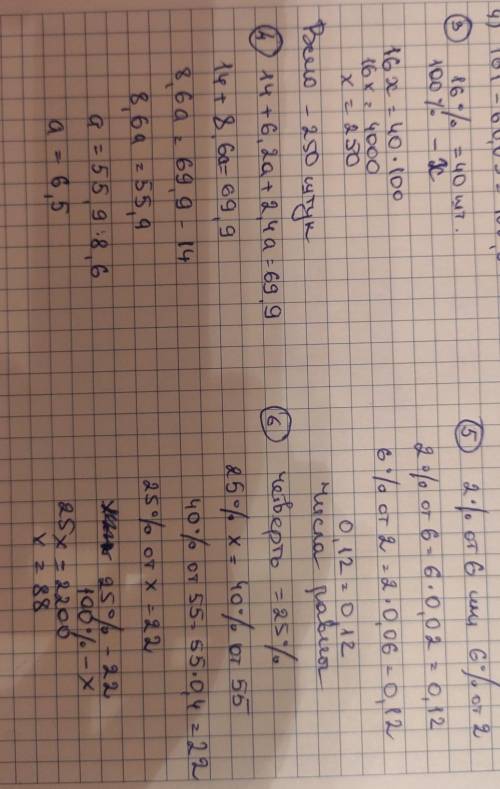 ③ 16% = 40 шт.
100% - x
16x = 40·100
16x = 4000
x = 250
Всего - 250 штук
④ 14 + 6,2a + 2,4a = 69,9
14 + 8,6a = 69,9
8,6a = 69,9 - 14
8,6a = 55,9
a = 55,9:8,6
a = 6,5
⑤ 2% от 6 или 6% от 2
2% от 6 = 6·0,02 = 0,12
6% от 2 = 2·0,06 = 0,12
0,12 = 0,12
числа равны
⑥ четверть = 25%
25% x = 40% от 55
40% от 55 = 55·0,4 = 22
25% от x = 22
25% - 22
100% - x
25x = 2200
x = 88